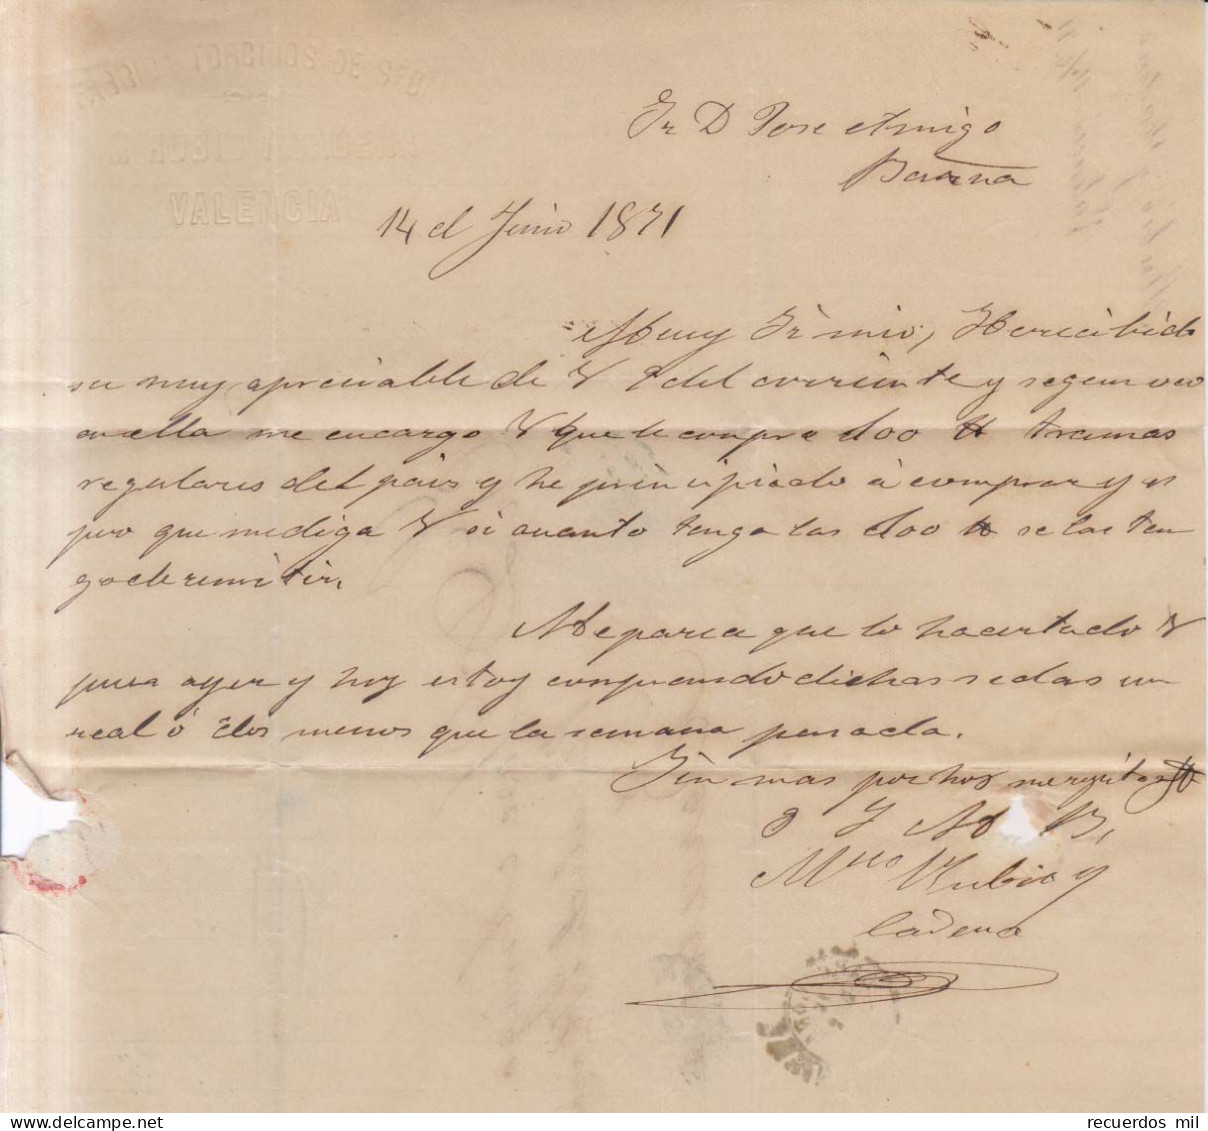 TORCIDOS DE SEDA
M. RUBIO Y CADENA
VALENCIA
Sr D Jose Amigo
Barna
14 el Junio 1871
Muy Sr mio, He recibido
su muy apreciable de V 9 del corriente y segun veo
en ella me encarga V que le compre 100 tt tramas
regulares del pais y he principiado á comprar y es
pero que me diga V si cuanto tenga las 100 tt se las ten
go de remitir.
Me parece que lo hacertado V
pues ayer y hoy estoy comprando dichas sedas un
real ó dos menos que la semana pasada.
Sin mas por hoy me repito
S M B,
Rubio y
Cadena
recuerdos mil